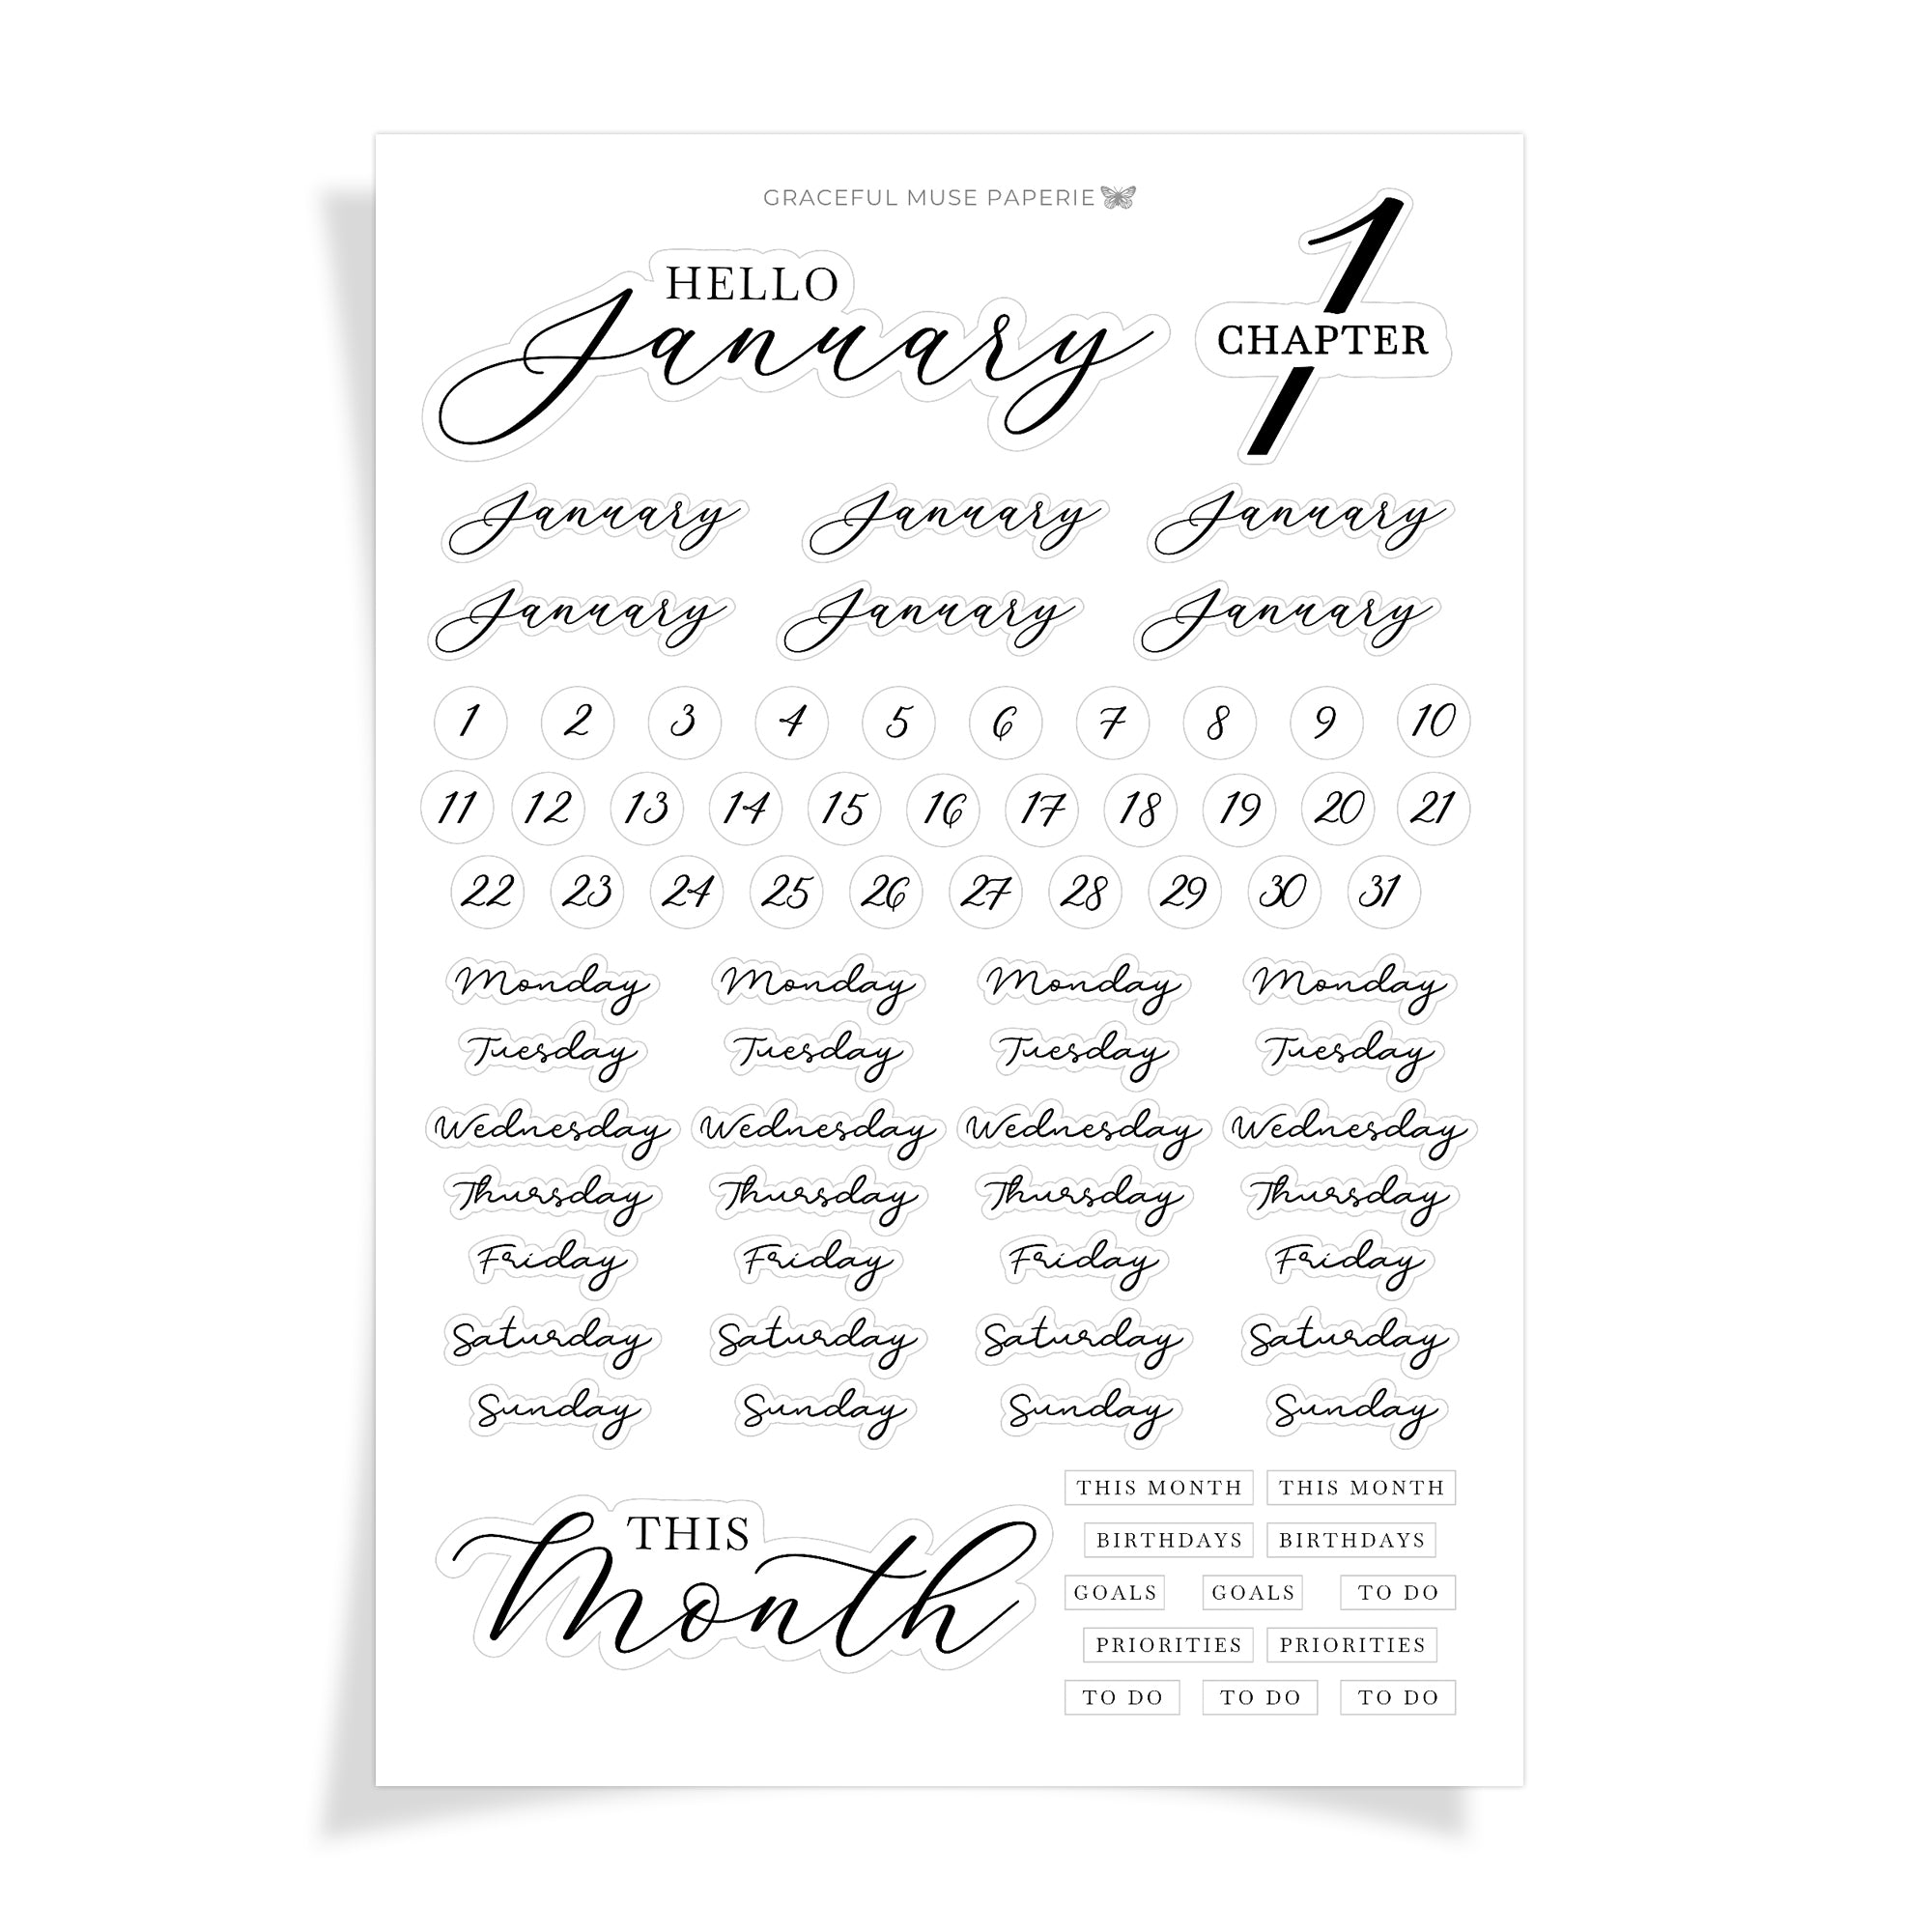 GRACEFUL MUSE PAPERIE
HELLO
January
1
CHAPTER
January January January
January January January
1 2 3 4 5 6 7 8 9 10
11 12 13 14 15 16 17 18 19 20 21
22 23 24 25 26 27 28 29 30 31
Monday Monday Monday Monday
Tuesday Tuesday Tuesday Tuesday
Wednesday Wednesday Wednesday Wednesday
Thursday Thursday Thursday Thursday
Friday Friday Friday Friday
Saturday Saturday Saturday Saturday
Sunday Sunday Sunday Sunday
THIS
Month
THIS MONTH THIS MONTH
BIRTHDAYS BIRTHDAYS
GOALS GOALS TO DO
PRIORITIES PRIORITIES
TO DO TO DO TO DO